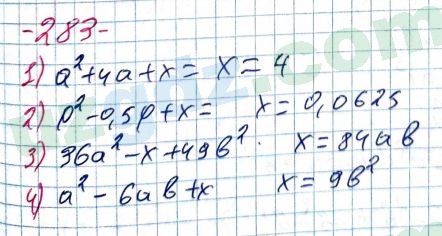 -283-
1) a²+4a+x= x=4
2) p²-0,5p+x= x=0,0625
3) 36a²-x+49b². x=84ab
4) a²-6ab+x x=9b²